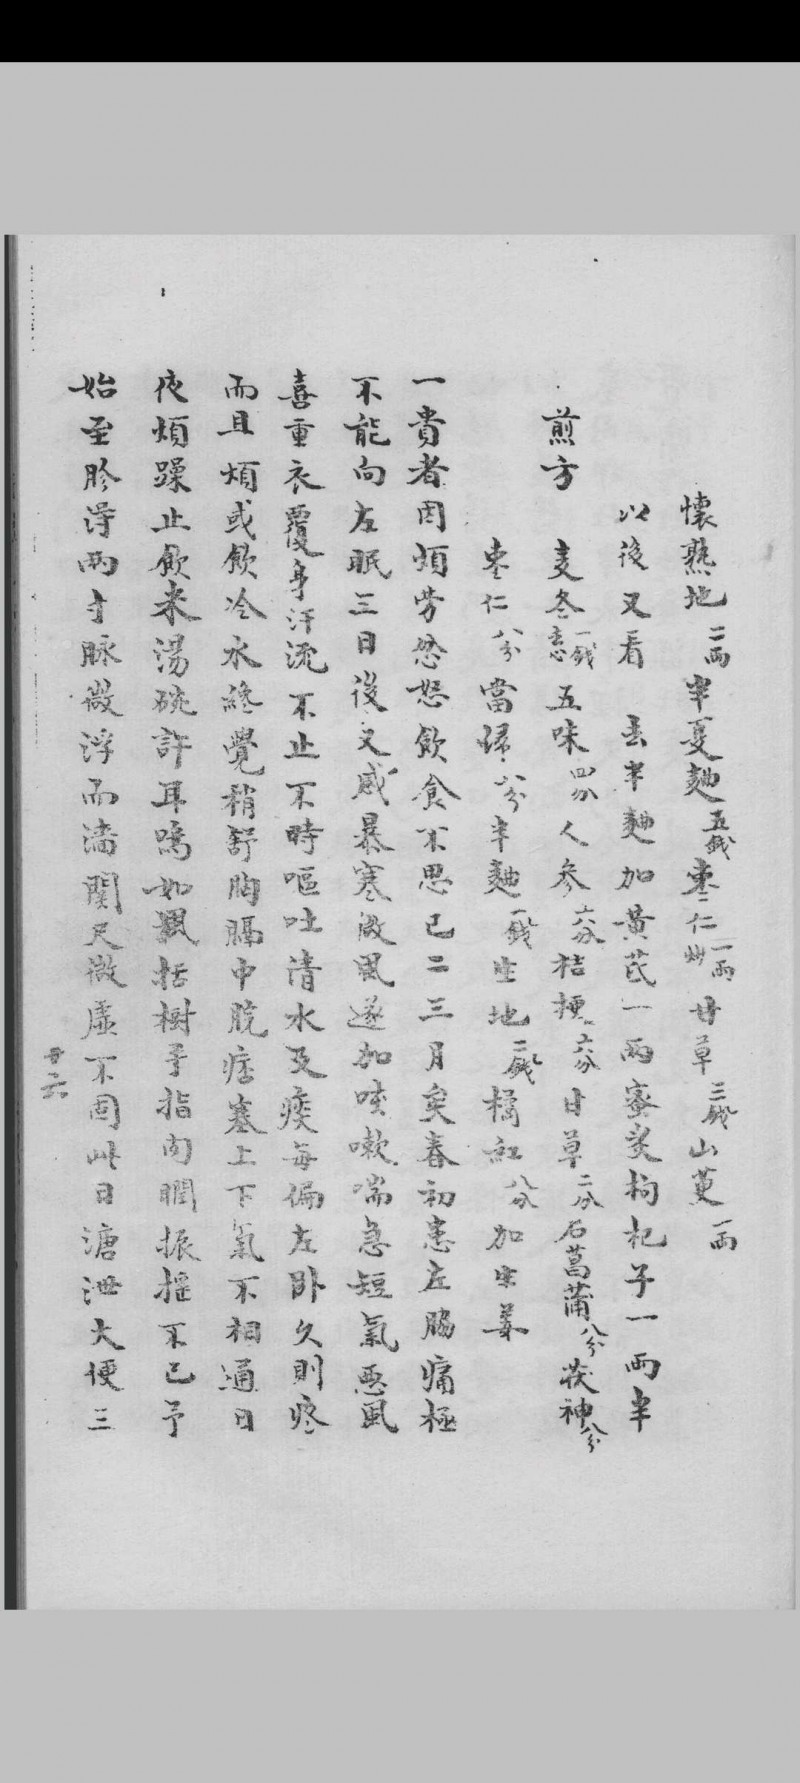 懷熟地二兩半夏麯五錢棗仁一兩炒甘草三錢山萸一兩
以後又看 去半麯加黃芪一兩蜜炙枸杞子一兩半
煎方 麥冬一錢去心五味四分人參六分桔梗六分甘草二分石菖蒲八分茯神八分
棗仁八分當歸八分半麯一錢生地二錢橘紅八分加生姜
一貴者因煩勞忿怒飲食不思已二三月矣春初患左脇痛極
不能向左眠三日後又感暴寒微風遂加咳嗽喘急短氣惡風
喜重衣覆身汗流不止不時嘔吐清水及痰每偏左卧久則疼
而且煩或飲冷水終覺稍舒胸膈中脘痞塞上下氣不相通日
夜煩躁止飲米湯碗許耳鳴如風括樹手指肉瞤振搖不已予
始至胗得兩寸脉微浮而濇関尺微虛不固此日溏泄大便三
廿六